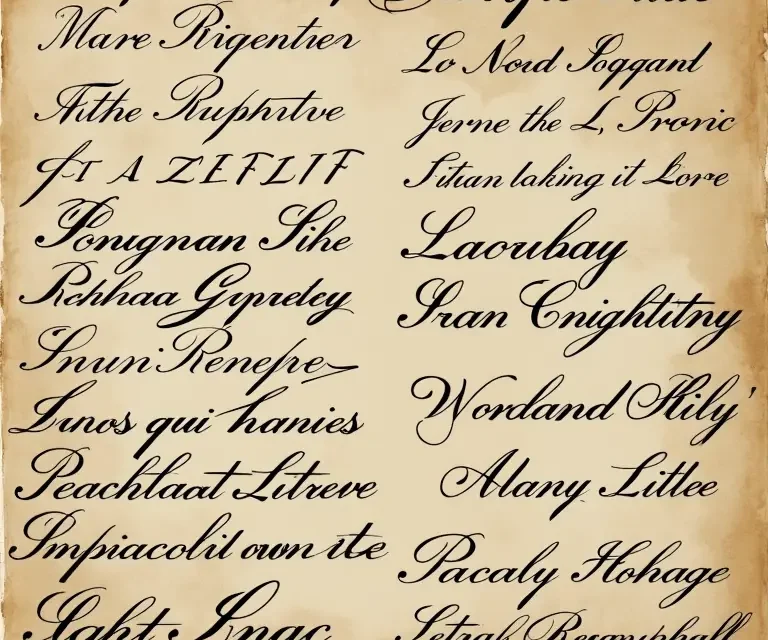 Mare Rigentier
Aithe Ruphitve
fT A ZEFLIF
Ponugnan Sihe
Rchhaa Gypretcy
Snuni Renepe
Lunos qui hanies
Peachlaat Litreve
Impiacolil own ite
Lo Nord Soggant
Jerne the L, Pronic
Sitian laking it Lore
Laoubay
Sran Cnightitny
Wordand Hily'
Alany Litlee
Pacaly Hohage